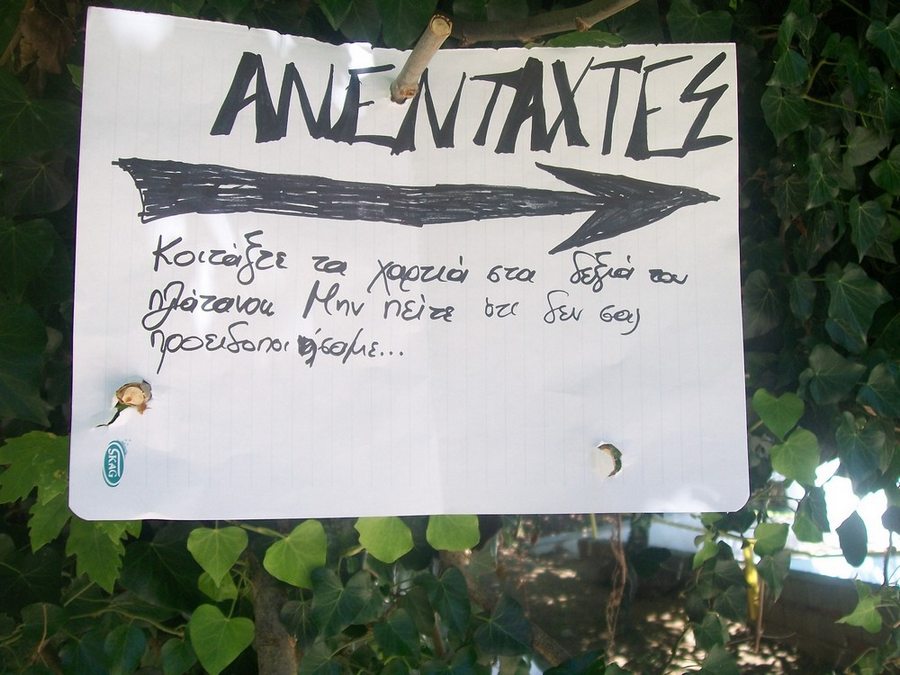 ΑΝΕΝΤΑΧΤΕΣ
Κοιτάξτε τα χαρτιά στα δεξιά του
πλάτανου Μην πείτε ότι δεν σας
προειδοποιήσαμε...
SKAG